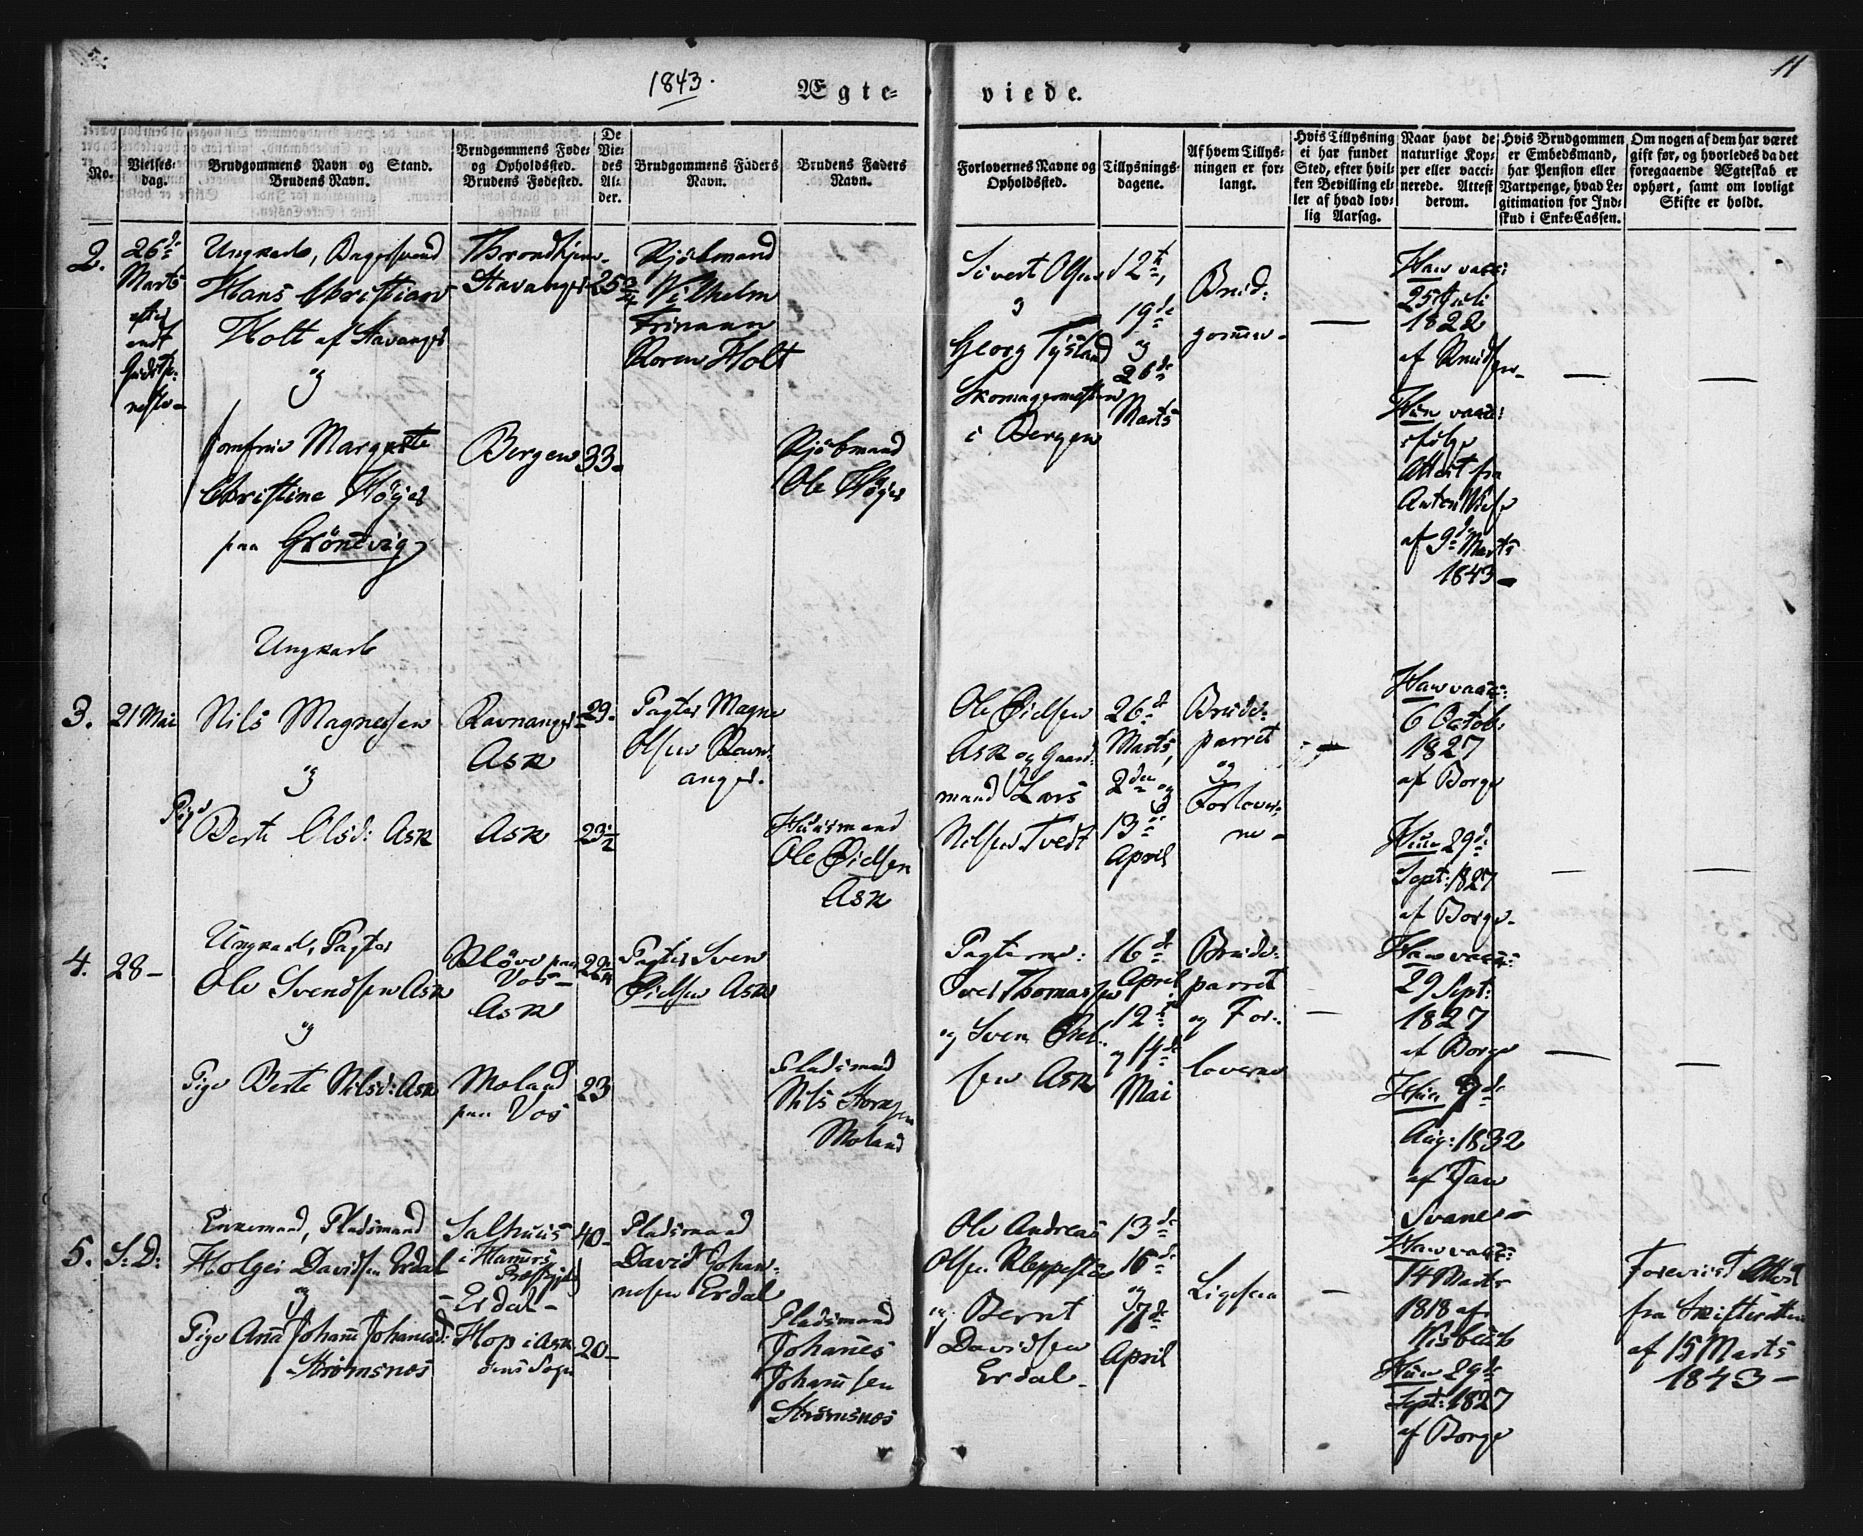 1843.
Ægte-
viede.
11
No.
Vielses-
dag.
Brudgommens Navn og Stand.
Brudens Navn.
Brudgommens Føde-
og Opholdssted.
Brudens Fødested.
De
Vie-
des
Al-
der.
Brudgommens Faders
Navn.
Brudens Faders
Navn.
Forlovernes Navne og
Opholdssted.
Tillysnings-
dagene.
Af hvem Tillys-
ningen er for-
langt.
Hvis Tillysning
ei har fundet
Sted, efter hvil-
ken Bevilling el-
ler af hvad lov-
lig Aarsag.
Naar havt de
naturlige Kop-
per eller vacci-
nerede. Attest
derom.
Hvis Brudgommen
er Embedsmand,
har Pension eller
Vartpenge, hvad Le-
gitimation for Ind-
skud i Enke-Cassen.
Om nogen af dem har været
gift før, og hvorledes da det
foregaaende Ægteskab er
ophørt, samt om lovligt
Skifte er holdt.
2.
26de
Marts
efter
endt
Gudstje-
neste
Ungkarl, Bagersvend
Hans Christian
Holt af Stavanger
og
Jomfrue Margrete
Christine Höyer
paa Gröndvig
Throndhjem
Stavanger
Bergen
25 3/4
33
Kjöbmand
Wilhelm
Frimann
Koren Holt
Kjöbmand
Ole Höyer
Sivert Olsen
og
Georg Tysland
Skomagermestere
i Bergen
12te,
19de
og
26de
Marts
Brud-
gommen
Han vacc:
25 Juli
1822
af Knudsen
Hun vacc:
ifølge
Attest fra
Anton Wiese
af 9de Marts
1843
3.
21 Mai
Ungkarl
Nils Magnesen
og
Pige
Berte Olsd: Ask
Ravnanger
Ask
Ask
29
23 1/2
Pagter Magne
Olsen Ravn-
anger.
Huusmand
Ole Öielsen
Ask
Ole Öielsen
Ask og Gaard-
mand Lars
Nilsen Tvedt
26de
Marts,
2den og
13de
April
Brude-
parret
og
Forlover-
ne
Han vacc:
6 Octob:
1827
af Borge
Hun 29de
Sept: 1827
af Borge
4.
28
Ungkarl, Pagter
Ole Svendsen Ask
og
Pige Berte Nilsd: Ask
Klöve paa
Vos
Ask
Moland
paa Vos
22 3/4
23
Pagter Sven
Öielsen Ask
Pladsmand
Nils
Moland
Pagterne:
Thomassen
og Sven Öiel-
sen Ask
16de
April
12te
og 14de
Mai
Brude-
parret
og For-
loverne
Han vacc:
29 Sept:
1827
af Borge
Hun 9de
Aug: 1832
af Jan
Svane
5.
S: D:
Enkemand, Pladsmand
Holger Davidsen Erdal
og
Pige Ana Johane Johanesd:
Strömsnes
Salhuus
i Hammers
Præstegjeld
Erdal
Hop i Ask
öens Sogn
40
20
Pladsmand
David Johan-
nesen Erdal
Pladsmand
Johanes
Johansen
Strömsnes
Ole Andreas
Olsen Kleppestö
og Bernt
Davidsen
Erdal
13de
16de
og
17de
April
Ligesaa
Han vacc:
14 Marts
1818 af
Hun 29de
Sept: 1827
af Borge
Foreviist Attest
fra Skifteretten
af 15 Marts
1843